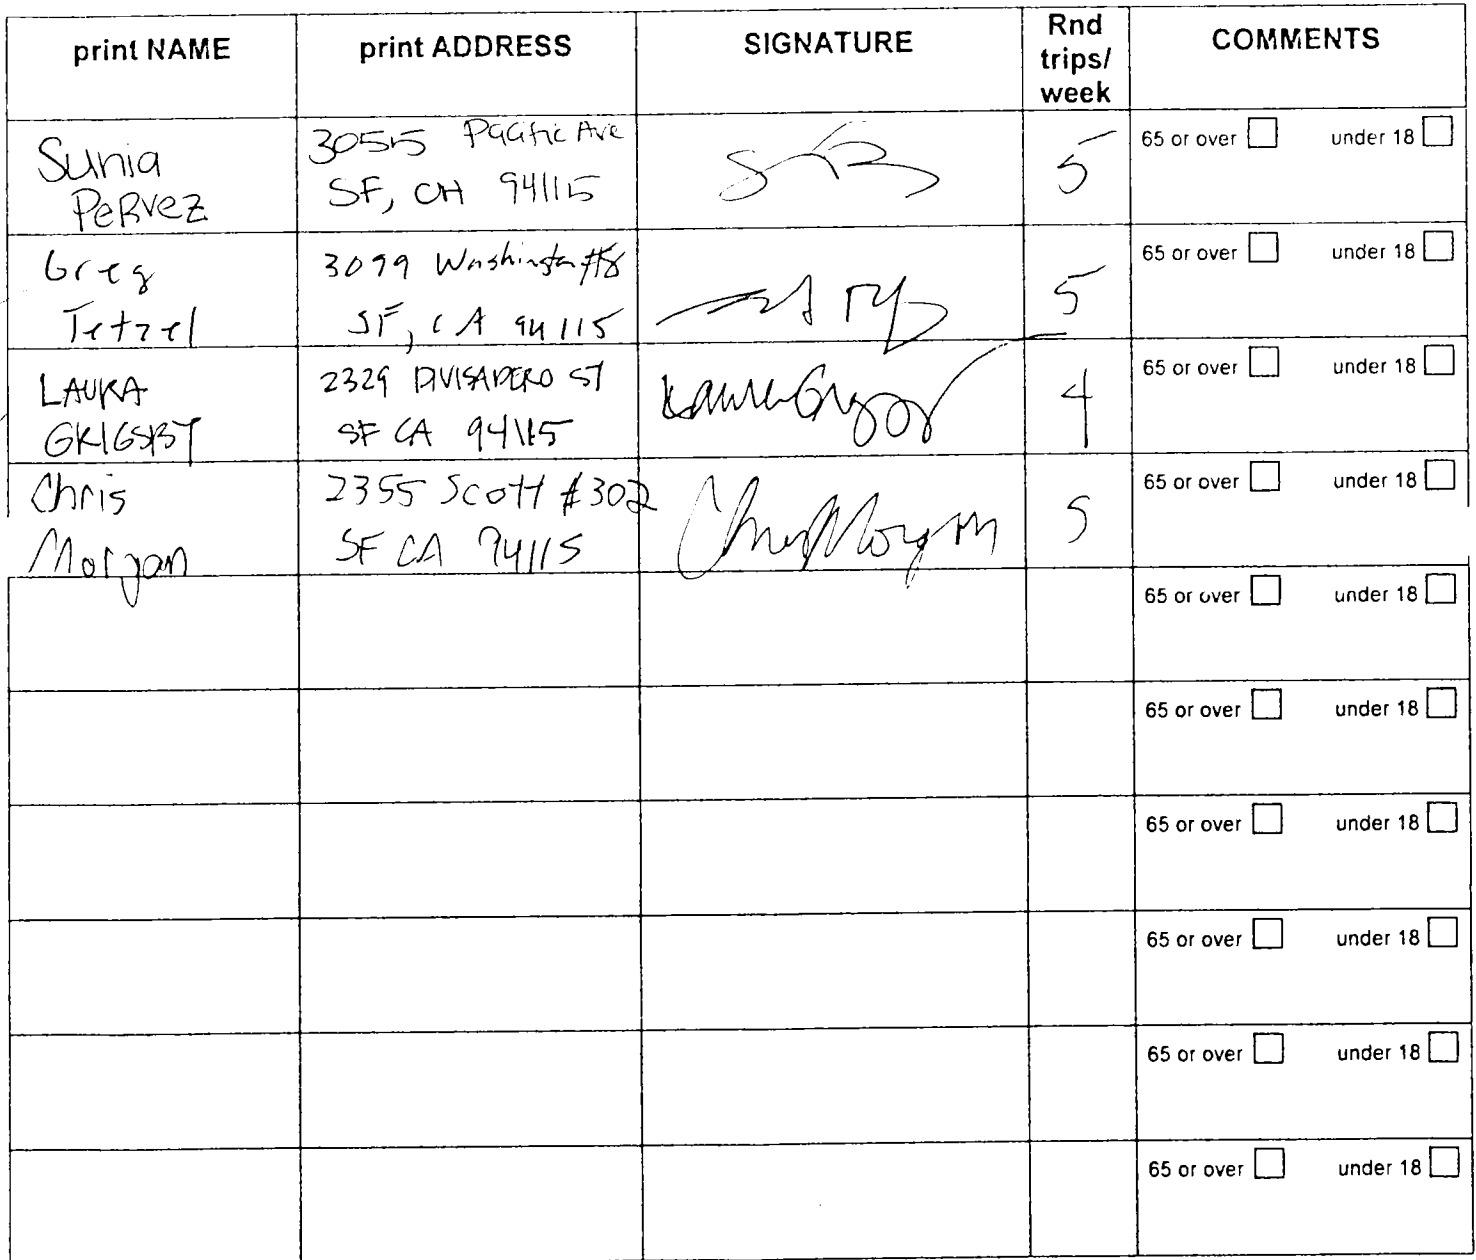 print NAME
print ADDRESS
SIGNATURE
Rnd
trips/
week
COMMENTS
Sunia
Pervez
Pacific Ave
SF, CA 94115
5
65 or over
under 18
Greg
Tetzel
3099 Washington #8
SF, CA 94115
5
65 or over
under 18
LAURA
GRIGSBY
2329 DIVISADERO ST
SF CA 94115
Laura Grigsby
4
65 or over
under 18
Chris
Morgan
2355 Scott #302
SF CA 94115
Chris Morgan
5
65 or over
under 18
65 or over
under 18
65 or over
under 18
65 or over
under 18
65 or over
under 18
65 or over
under 18
65 or over
under 18